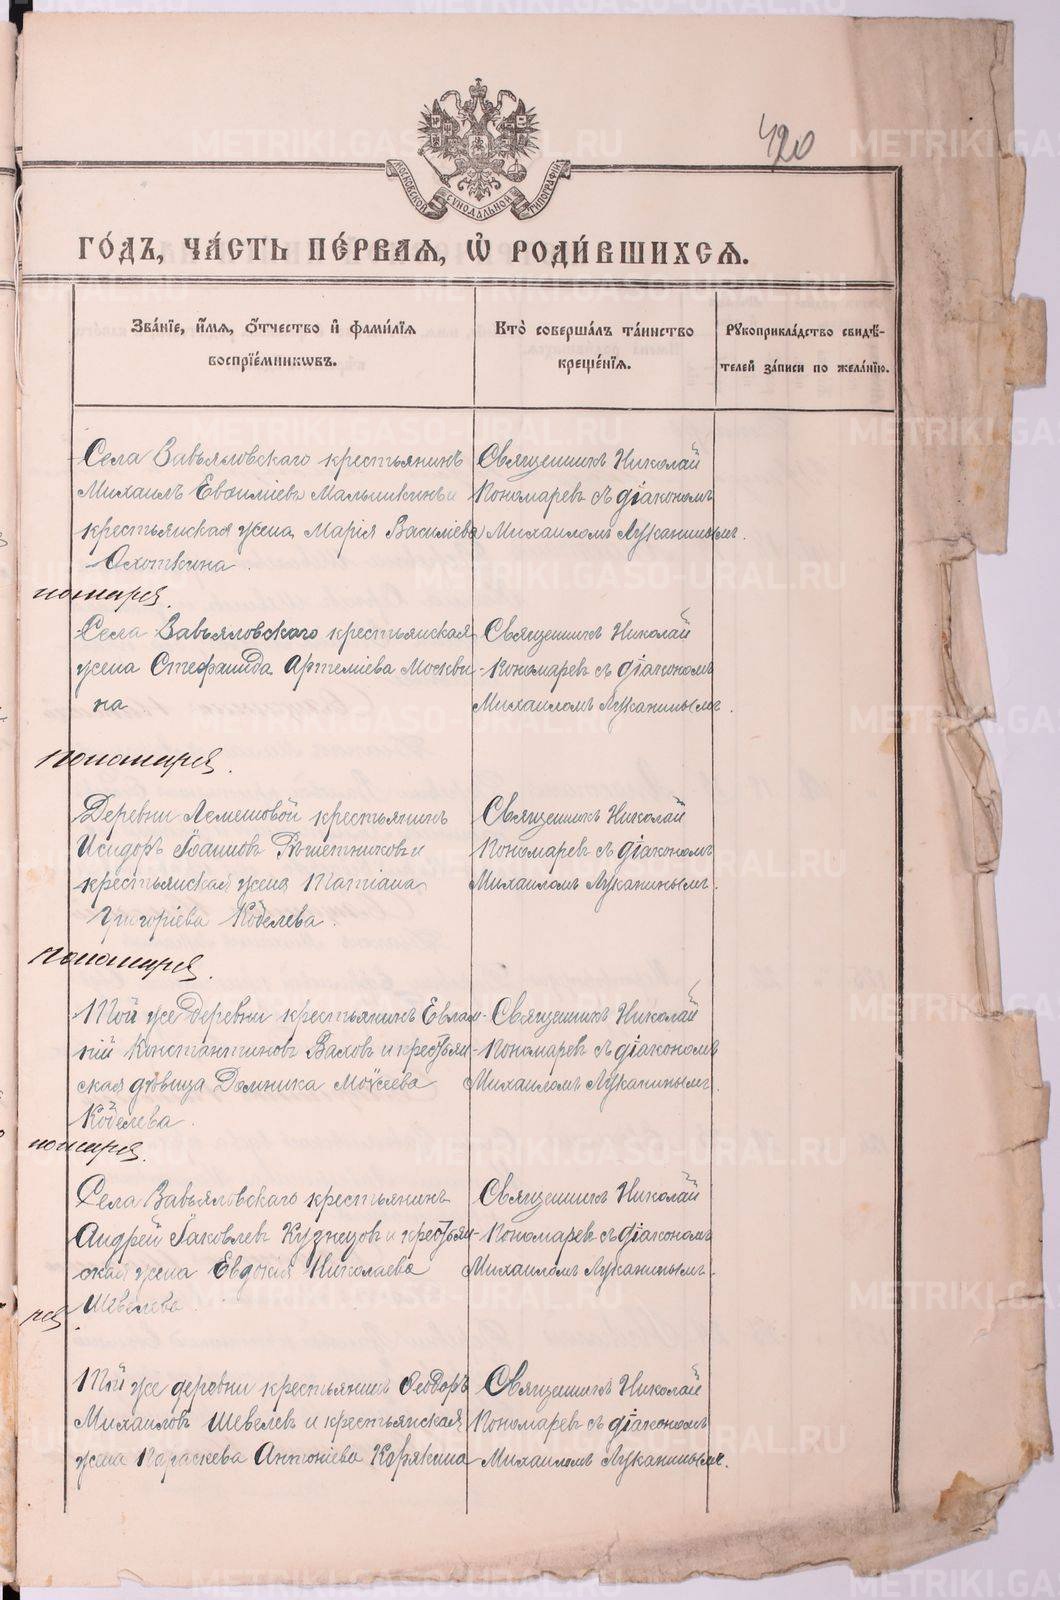 420
МОСКОВСКОЙ СѴНОДАЛЬНОЙ ТИПОГРАФІИ
ГО́ДЪ, ЧА́СТЬ ПЕ́РВАѦ, Ѿ РОДИ́ВШИХСѦ.
Зва́нїе, и҆́мѧ, ѻ҆́тчество и҆ фами́лїѧ
воспрїе́мникѡвъ.
Кто̀ соверша́лъ та́инство
креще́нїѧ.
Рꙋкоприкла́дство свидѣ́-
телей за́писи по жела́нїю.
Села Завьяловскаго крестьянинъ
Михаилъ Евѳиміевъ Малышкинъ и
крестьянская жена Марія Василіева
Охоткина
Священникъ Николай
Пономаревъ съ діакономъ
Михаиломъ Луканинымъ.
номаря.
Села Завьяловскаго крестьянская
жена Стефанида Артеміева Москви
на
Священникъ Николай
Пономаревъ съ діакономъ
Михаиломъ Луканинымъ.
пономаря.
Деревни Лемешовой крестьянинъ
Исидоръ Іоанновъ Рѣшетниковъ и
крестьянская жена Татіана
Григоріева Кобелева.
Священникъ Николай
Пономаревъ съ діакономъ
Михаиломъ Луканинымъ.
пономаря.
Той же деревни крестьянинъ Евлам-
пій Константиновъ Ваховъ и крестьян-
ская дѣвица Домника Моисеева
Кобелева.
Священникъ Николай
Пономаревъ съ діакономъ
Михаиломъ Луканинымъ.
номаря.
Села Завьяловскаго крестьянинъ
Андрей Іаковлевъ Кузнецовъ и крестьян-
ская жена Евдокія Николаева
Шевелева.
Священникъ Николай
Пономаревъ съ діакономъ
Михаиломъ Луканинымъ.
ря.
Той же деревни крестьянинъ Ѳеодоръ
Михаиловъ Шевелевъ и крестьянская
жена Параскева Антоніева Корякина
Священникъ Николай
Пономаревъ съ діакономъ
Михаиломъ Луканинымъ.
METRIKI.GASO-URAL.RU